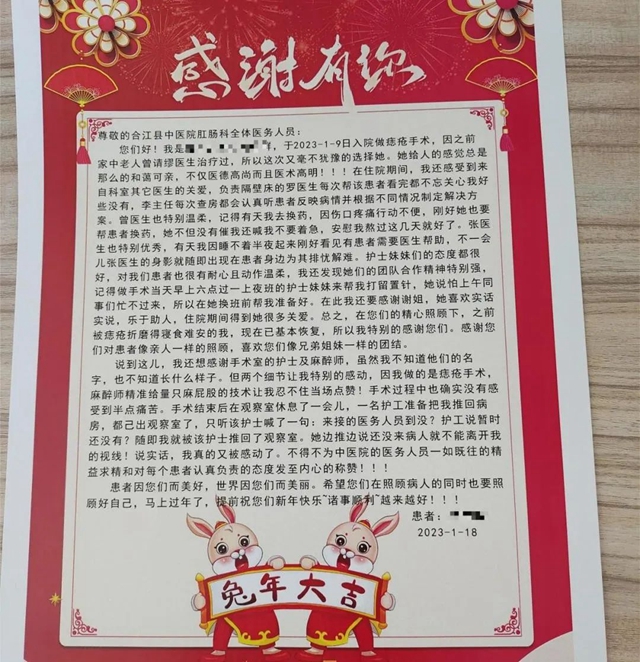 感谢有你
尊敬的合江县中医院肛肠科全体医务人员:
您们好!我是 ,于2023-1-9日入院做痔疮手术,因之前
家中老人曾请缪医生治疗过,所以这次又毫不犹豫的选择她。她给人的感觉总是
那么的和蔼可亲,不仅医德高尚而且医术高明!!!在住院期间,我还感受到来
自科室其它医生的关爱,负责隔壁床的罗医生每次帮该患者看完都不忘关心我好
些没有,李主任每次查房都会认真听患者反映病情并根据不同情况制定解决方
案。曾医生也特别温柔,记得有天我去换药,因伤口疼痛行动不便,刚好她也要
帮患者换药,她不但没有催我还喊我不要着急,安慰我熬过这几天就好了。张医
生也特别优秀,有天我因睡不着半夜起来刚好看见有患者需要医生帮助,不一会
儿张医生的身影就随即出现在患者身边为其排忧解难。护士妹妹们的态度都很
好,对我们患者也很有耐心且动作温柔,我还发现她们的团队合作精神特别强,
记得做手术当天早上六点过一上夜班的护士妹妹来帮我打留置针,她说怕上午同
事们忙不过来,所以在她换班前帮我准备好。在此我还要感谢谢姐,她喜欢实话
实说,乐于助人,住院期间得到她很多关爱。总之,在您们的精心照顾下,之前
被痔疮折磨得寝食难安的我,现在已基本恢复,所以我特别的感谢您们。感谢您
们对患者像亲人一样的照顾,喜欢您们像兄弟姐妹一样的团结。
说到这儿,我还想感谢手术室的护士及麻醉师,虽然我不知道他们的名
字,也不知道长什么样子。但两个细节让我特别的感动,因我做的是痔疮手术,
麻醉师精准给量只麻屁股的技术让我忍不住当场点赞!手术过程中也确实没有感
受到半点痛苦。手术结束后在观察室休息了一会儿,一名护工准备把我推回病
房,都己出观察室了,只听该护士喊了一句:来接的医务人员到没?护工说暂时
还没有?随即我就被该护士推回了观察室。她边推边说还没来病人就不能离开我
的视线!说实话,我真的又被感动了。不得不为中医院的医务人员一如既往的精
益求精和对每个患者认真负责的态度发至内心的称赞!!!
患者因您们而美好,世界因您们而美丽。希望您们在照顾病人的同时也要照
顾好自己,马上过年了,提前祝您们新年快乐~诸事顺利~越来越好!!!!
患者:
2023-1-18
兔年大吉